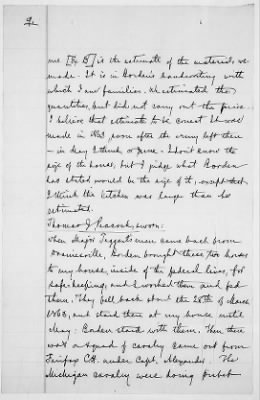 2
me [Ex B] is the estimate of the materials, we
made. It is in Borden's handwriting with
which I am familiar. We estimated the
quantities, but did not carry out the price.
I believe that estimate to be correct. It was
made in 1863, soon after the army left there
— in May I think, or June. I don't know the
size of the house, but I judge what Borden
has stated would be the size of it, except that
I think the kitchen was larger than he
estimated.
Thomas J. Peacock, sworn:
When Major Taggart's men came back from
Drainesville, Borden brought these two horses
to my house, inside of the federal lines, for
safe keeping, and I worked them and fed
them. They fell back about the 28th of March
1863, and stand there at my house until
May. Borden staid with them. Then there
was a squad of cavalry came out from
Fairfax C.H. under Capt. Alexander. The
Michigan cavalry were doing picket